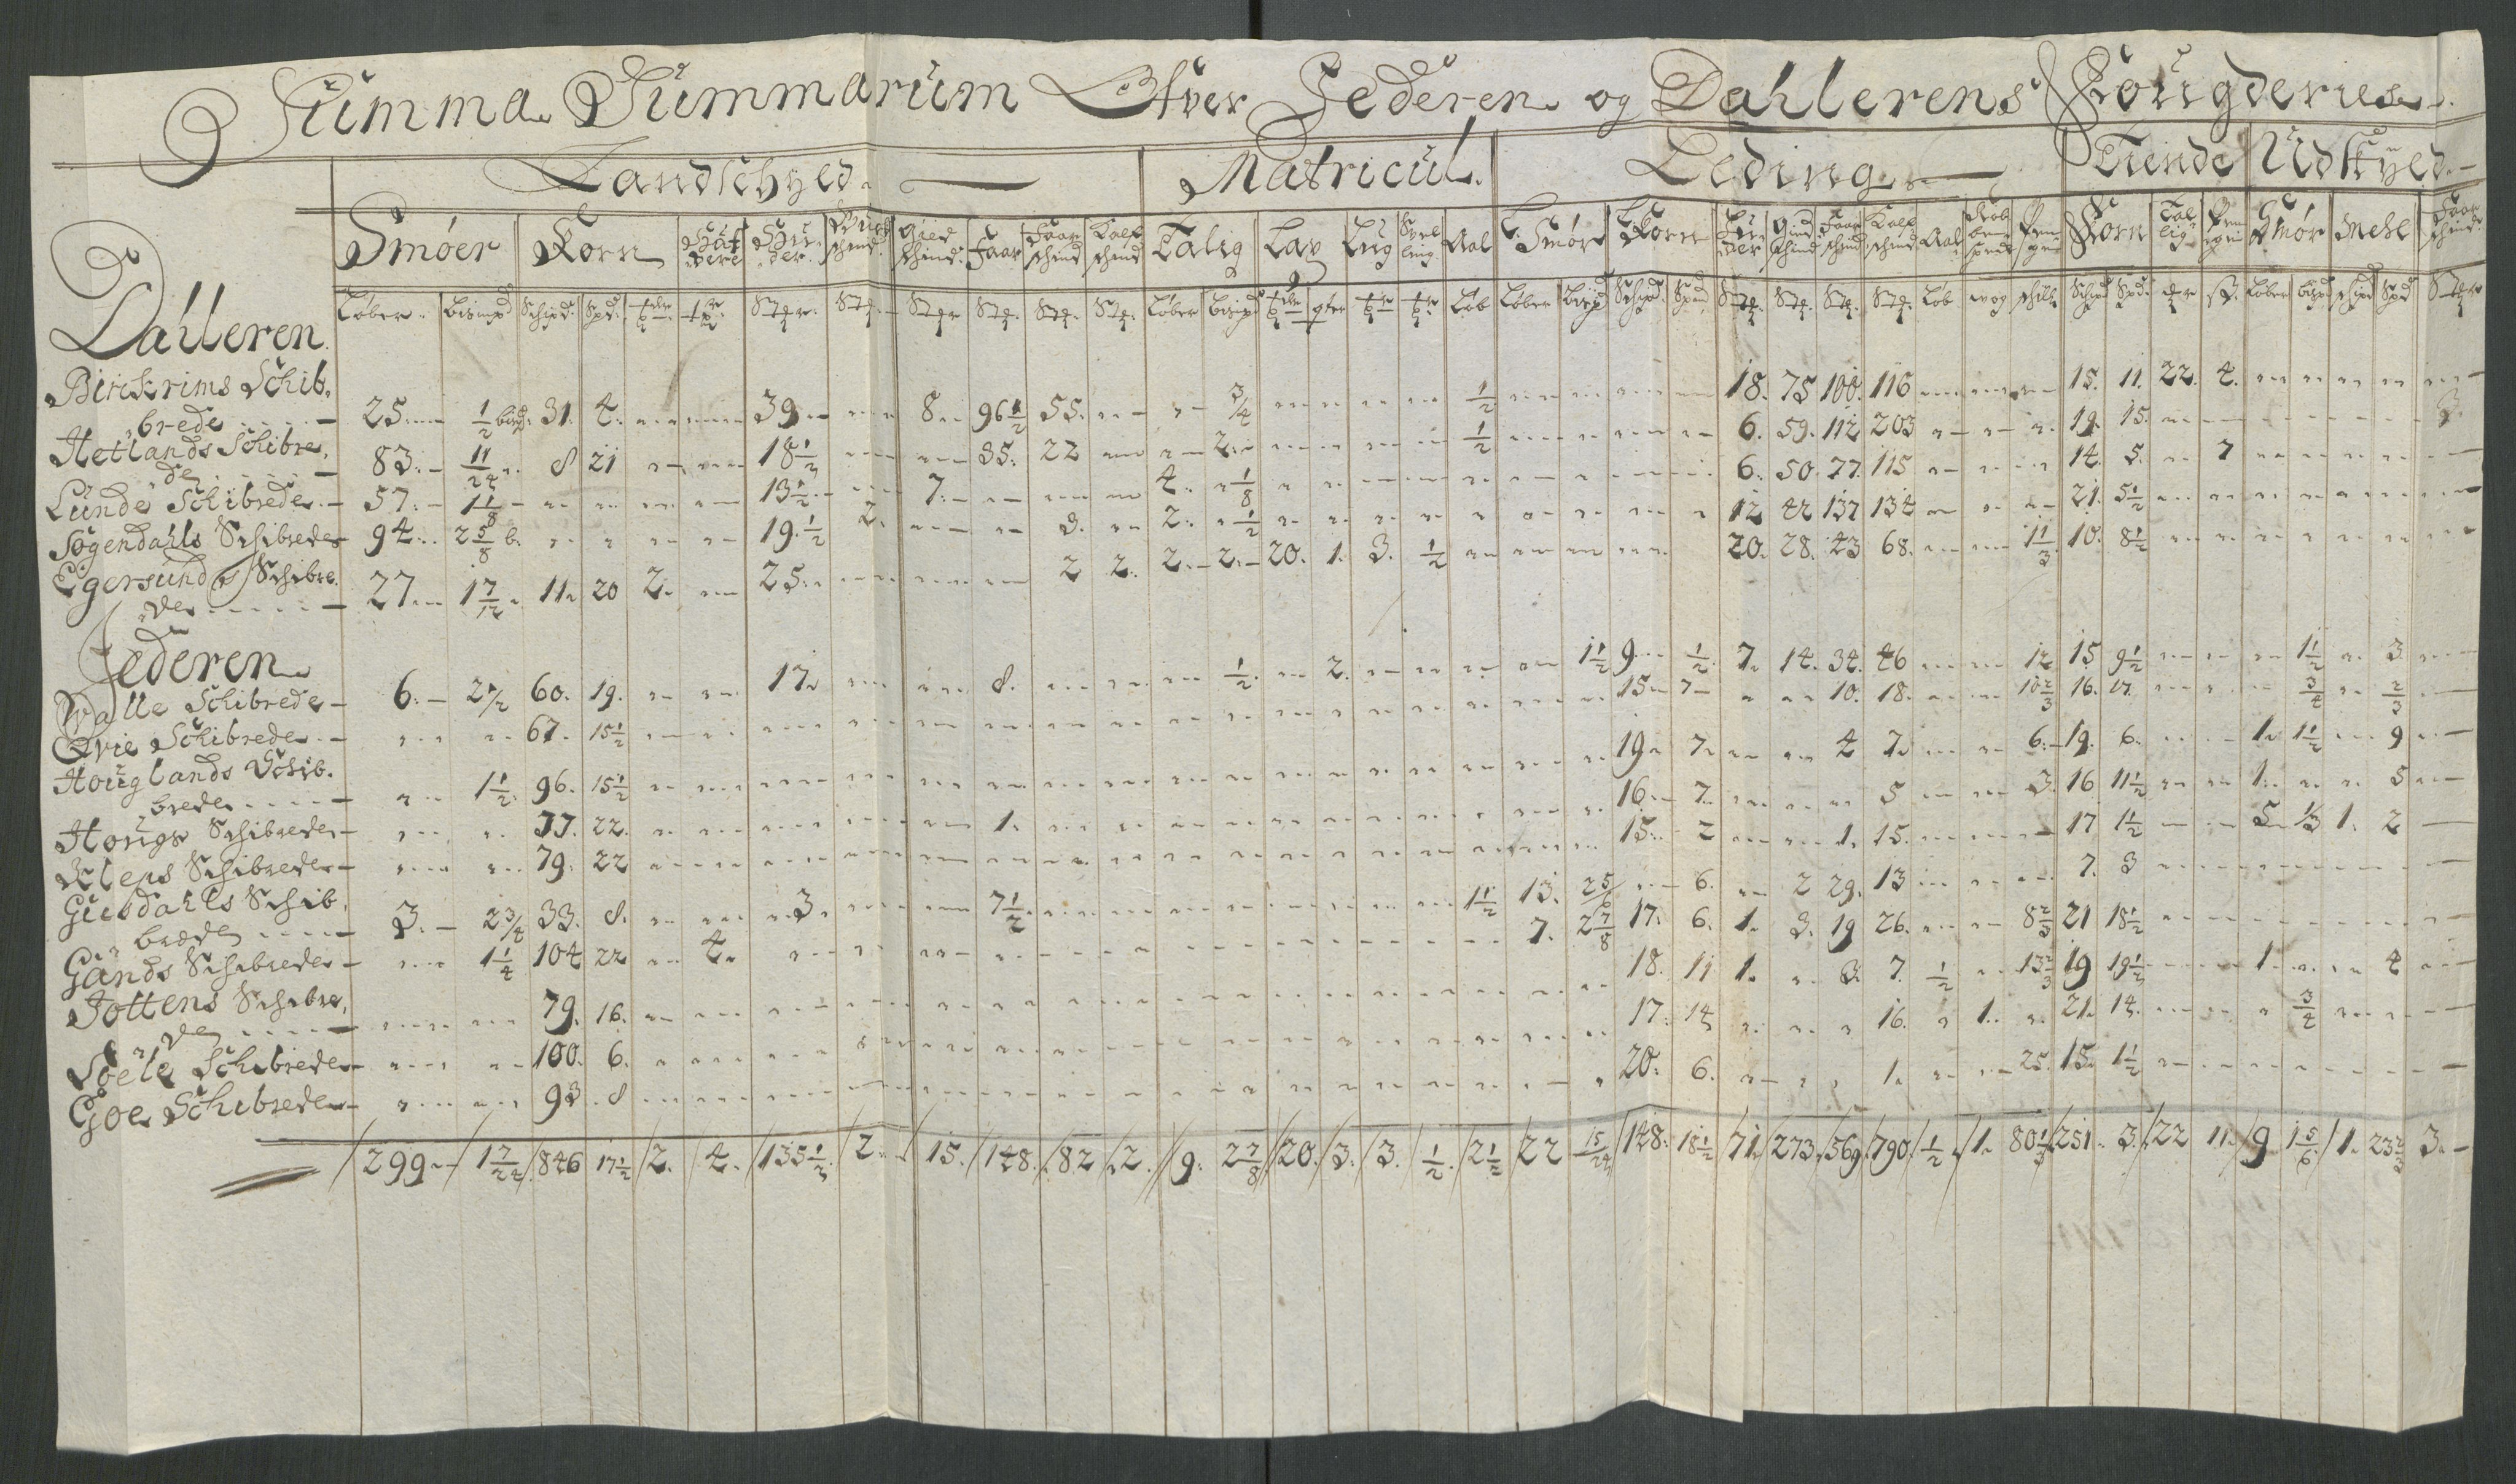 Summa Summarum Ofver Jederen og Dahlerens Fougderies
Landschyld Matricul Leding Tiende Udskyld
Smøer Korn Huder Faar Talig Lax Aal Smør Korn Aal Korn Smør Mehl
Dahleren
Løber Bismpd Schipd Spd Løber Løber Schipd Spd
Birckrims Schib-
brede 25 1/2 31 4 39 8 96 1/2 55 3/4 1/2 18 75 100 116 15 11 22 4
Hetlands Schibre-
de 83 11/24 8 21 18 1/2 35 22 2 1/2 6 59 112 203 19 15 3
Lunde Schibrede 57 1 1/8 13 1/2 7 4 1/8 6 50 77 115 14 5 7
Sogendahls Schibrede 94 2 5/8 19 1/2 2 3 2 1/2 12 42 137 134 21 5 1/2
Egersunds Schibre-
de 27 1 7/12 11 20 2 25 2 2 2 2 20 1 3 1/2 20 28 43 68 1 1/3 10 8 1/2
Jederen
Walle Schibrede 6 2 1/2 60 19 17 8 1/2 2 1 1/2 9 1/2 7 14 34 46 12 15 9 1/2 1 1/2 3
Qvie Schibrede 67 15 1/2 15 7 10 18 10 2/3 16 17 3/4 2/3
Houglands Schib-
brede 1 1/2 96 15 1/2 19 7 4 7 6 19 6 1 1 1/2 9
Hougs Schibrede 77 22 1 16 7 5 3 16 11 1/2 1 5
Kleps Schibrede 79 22 15 2 1 15 17 1 1/2 5 1/3 1 2
Giesdahls Schib-
brede 3 2 3/4 33 8 3 7 1/2 1 1/2 13 2 5/6 6 2 29 13 7 3
Gands Schibrede 1 1/4 104 22 4 7 2 7/8 17 6 1 3 19 26 8 2/3 21 18 1/2
Jottens Schibre-
de 79 16 18 11 1 3 7 1/2 13 2/3 19 19 1/2 1 4
Soele Schibrede 100 6 17 14 16 1 21 14 3/4
Goe Schibrede 93 8 20 6 1 25 15 1 1/2
299 1 7/24 846 17 1/2 2 4 135 1/2 2 15 148 82 2 9 2 7/8 20 3 3 1/2 2 1/2 22 15/24 148 18 1/2 71 273 569 790 1/2 1 80 1/3 251 3 22 11 9 1 5/6 1 23 2/3 3